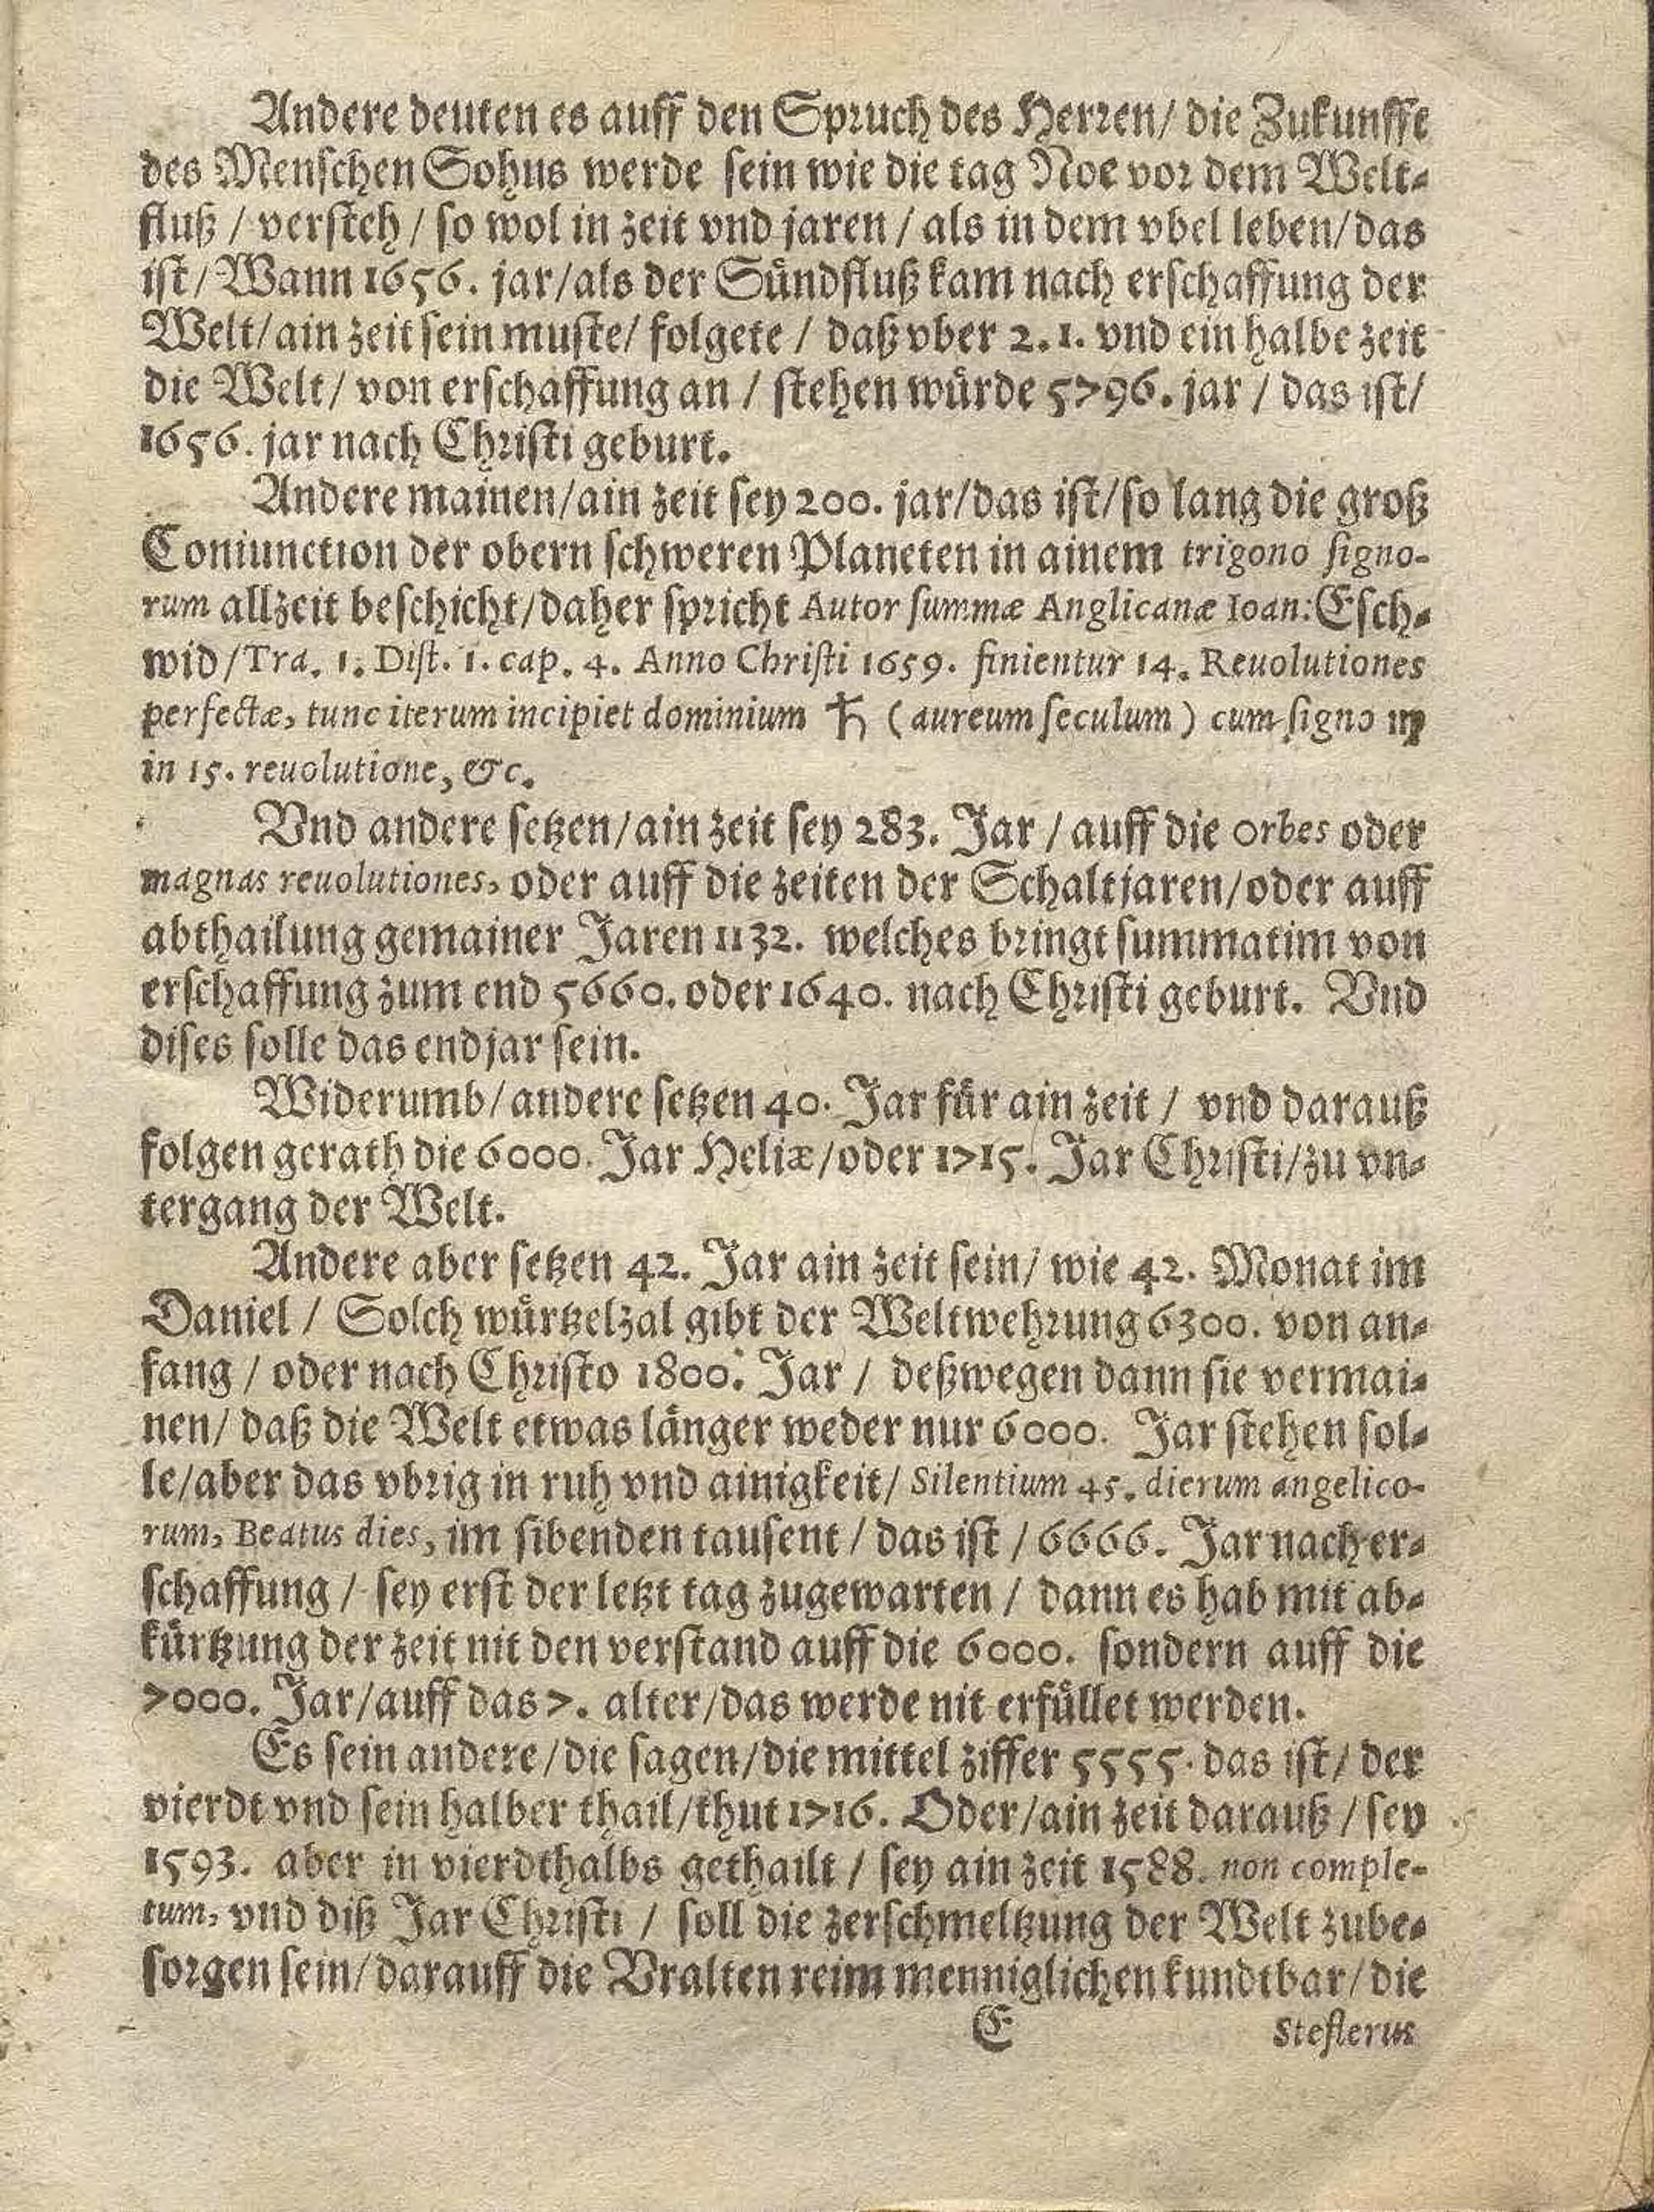 Andere deuten es auff den Spruch des Herren/ die Zukunfft
des Menschen Sohns werde sein wie die tag Noe vor dem Welt-
fluß / versteh / so wol in zeit vnd jaren / als in dem vbel leben/das
ist/ Wann 1656. jar/als der Sündfluß kam nach erschaffung der
Welt/ain zeit sein muste/ folgete / daß vber 2. 1. vnd ein halbe zeit
die Welt/ von erschaffung an / stehen würde 5796. jar / das ist/
1656. jar nach Christi geburt.
Andere mainen/ain zeit sey 200. jar/das ist/so lang die groß
Coniunction der obern schweren Planeten in ainem trigono signo-
rum allzeit beschicht/daher spricht Autor summæ Anglicanæ Ioan: Esch-
wid/Tra. 1. Dist. 1. cap. 4. Anno Christi 1659. finientur 14. Reuolutiones
perfectæ, tunc iterum incipiet dominium ♄ (aureum seculum) cum signo ♍
in 15. reuolutione, &c.
Vnd andere setzen/ain zeit sey 283. Jar / auff die orbes oder
magnas reuolutiones, oder auff die zeiten der Schaltjaren/oder auff
abthailung gemainer Jaren 1132. welches bringt summatim von
erschaffung zum end 5660. oder 1640. nach Christi geburt. Vnd
dises solle das endjar sein.
Widerumb/andere setzen 40. Jar für ain zeit / vnd darauß
folgen gerath die 6000. Jar Heliæ/oder 1715. Jar Christi/zu vn-
tergang der Welt.
Andere aber setzen 42. Jar ain zeit sein/ wie 42. Monat im
Daniel / Solch würtzelzal gibt der Weltwehrung 6300. von an-
fang / oder nach Christo 1800. Jar / deßwegen dann sie vermai-
nen/ daß die Welt etwas länger weder nur 6000. Jar stehen sol-
le/aber das vbrig in ruh vnd ainigkeit/ Silentium 45. dierum angelico-
rum, Beatus dies, im sibenden tausent / das ist / 6666. Jar nach er-
schaffung / sey erst der letzt tag zugewarten / dann es hab mit ab-
kürtzung der zeit nit den verstand auff die 6000. sondern auff die
7000. Jar/auff das 7. alter/das werde nit erfüllet werden.
Es sein andere/die sagen/die mittel ziffer 5555. das ist/ der
vierdt vnd sein halber thail/thut 1716. Oder/ain zeit darauß / sey
1593. aber in vierdthalbs gethailt / sey ain zeit 1588. non comple-
tum, vnd diß Jar Christi / soll die zerschmeltzung der Welt zube-
sorgen sein/darauff die Vralten reim menniglichen kundtbar/die
E Steflerus